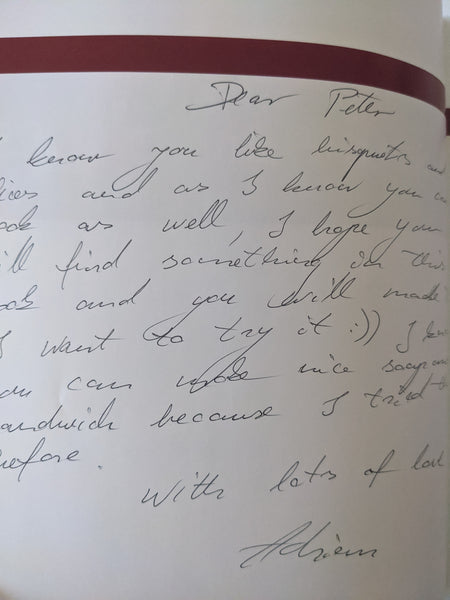 Dear Peter
I know you like bisquets and
ices and as I know you
ook as well, I hope you
ill find something in this
ook and you will made
I want to try it :)) I know
ou can make nice
andwich because I tried
efore.
With lots of love
Adrien